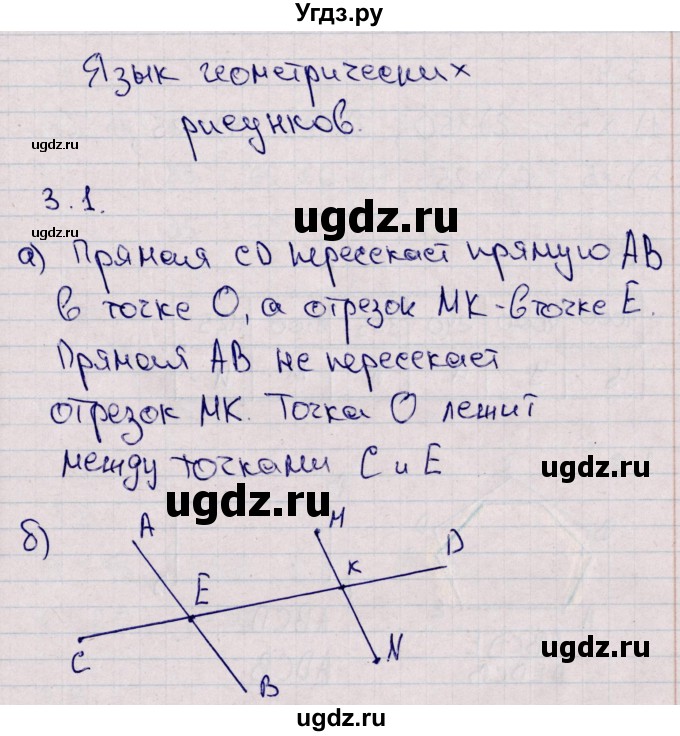 Угдз.ру
Язык геометрических
рисунков.
ugdz.ru
ugdz.ru
3.1.
ugdz.ru
ugdz.ru
а) Прямая CD пересекает прямую AB
в точке O, а отрезок MK - в точке E.
ugdz.ru
Прямая AB не пересекает
отрезок MK. Точка O лежит
ugdz.ru
между точками C и E
ugdz.ru
ugdz.ru
б)
A
M
D
E
K
ugdz.ru
C
N
B
ugdz.ru
ugdz.ru